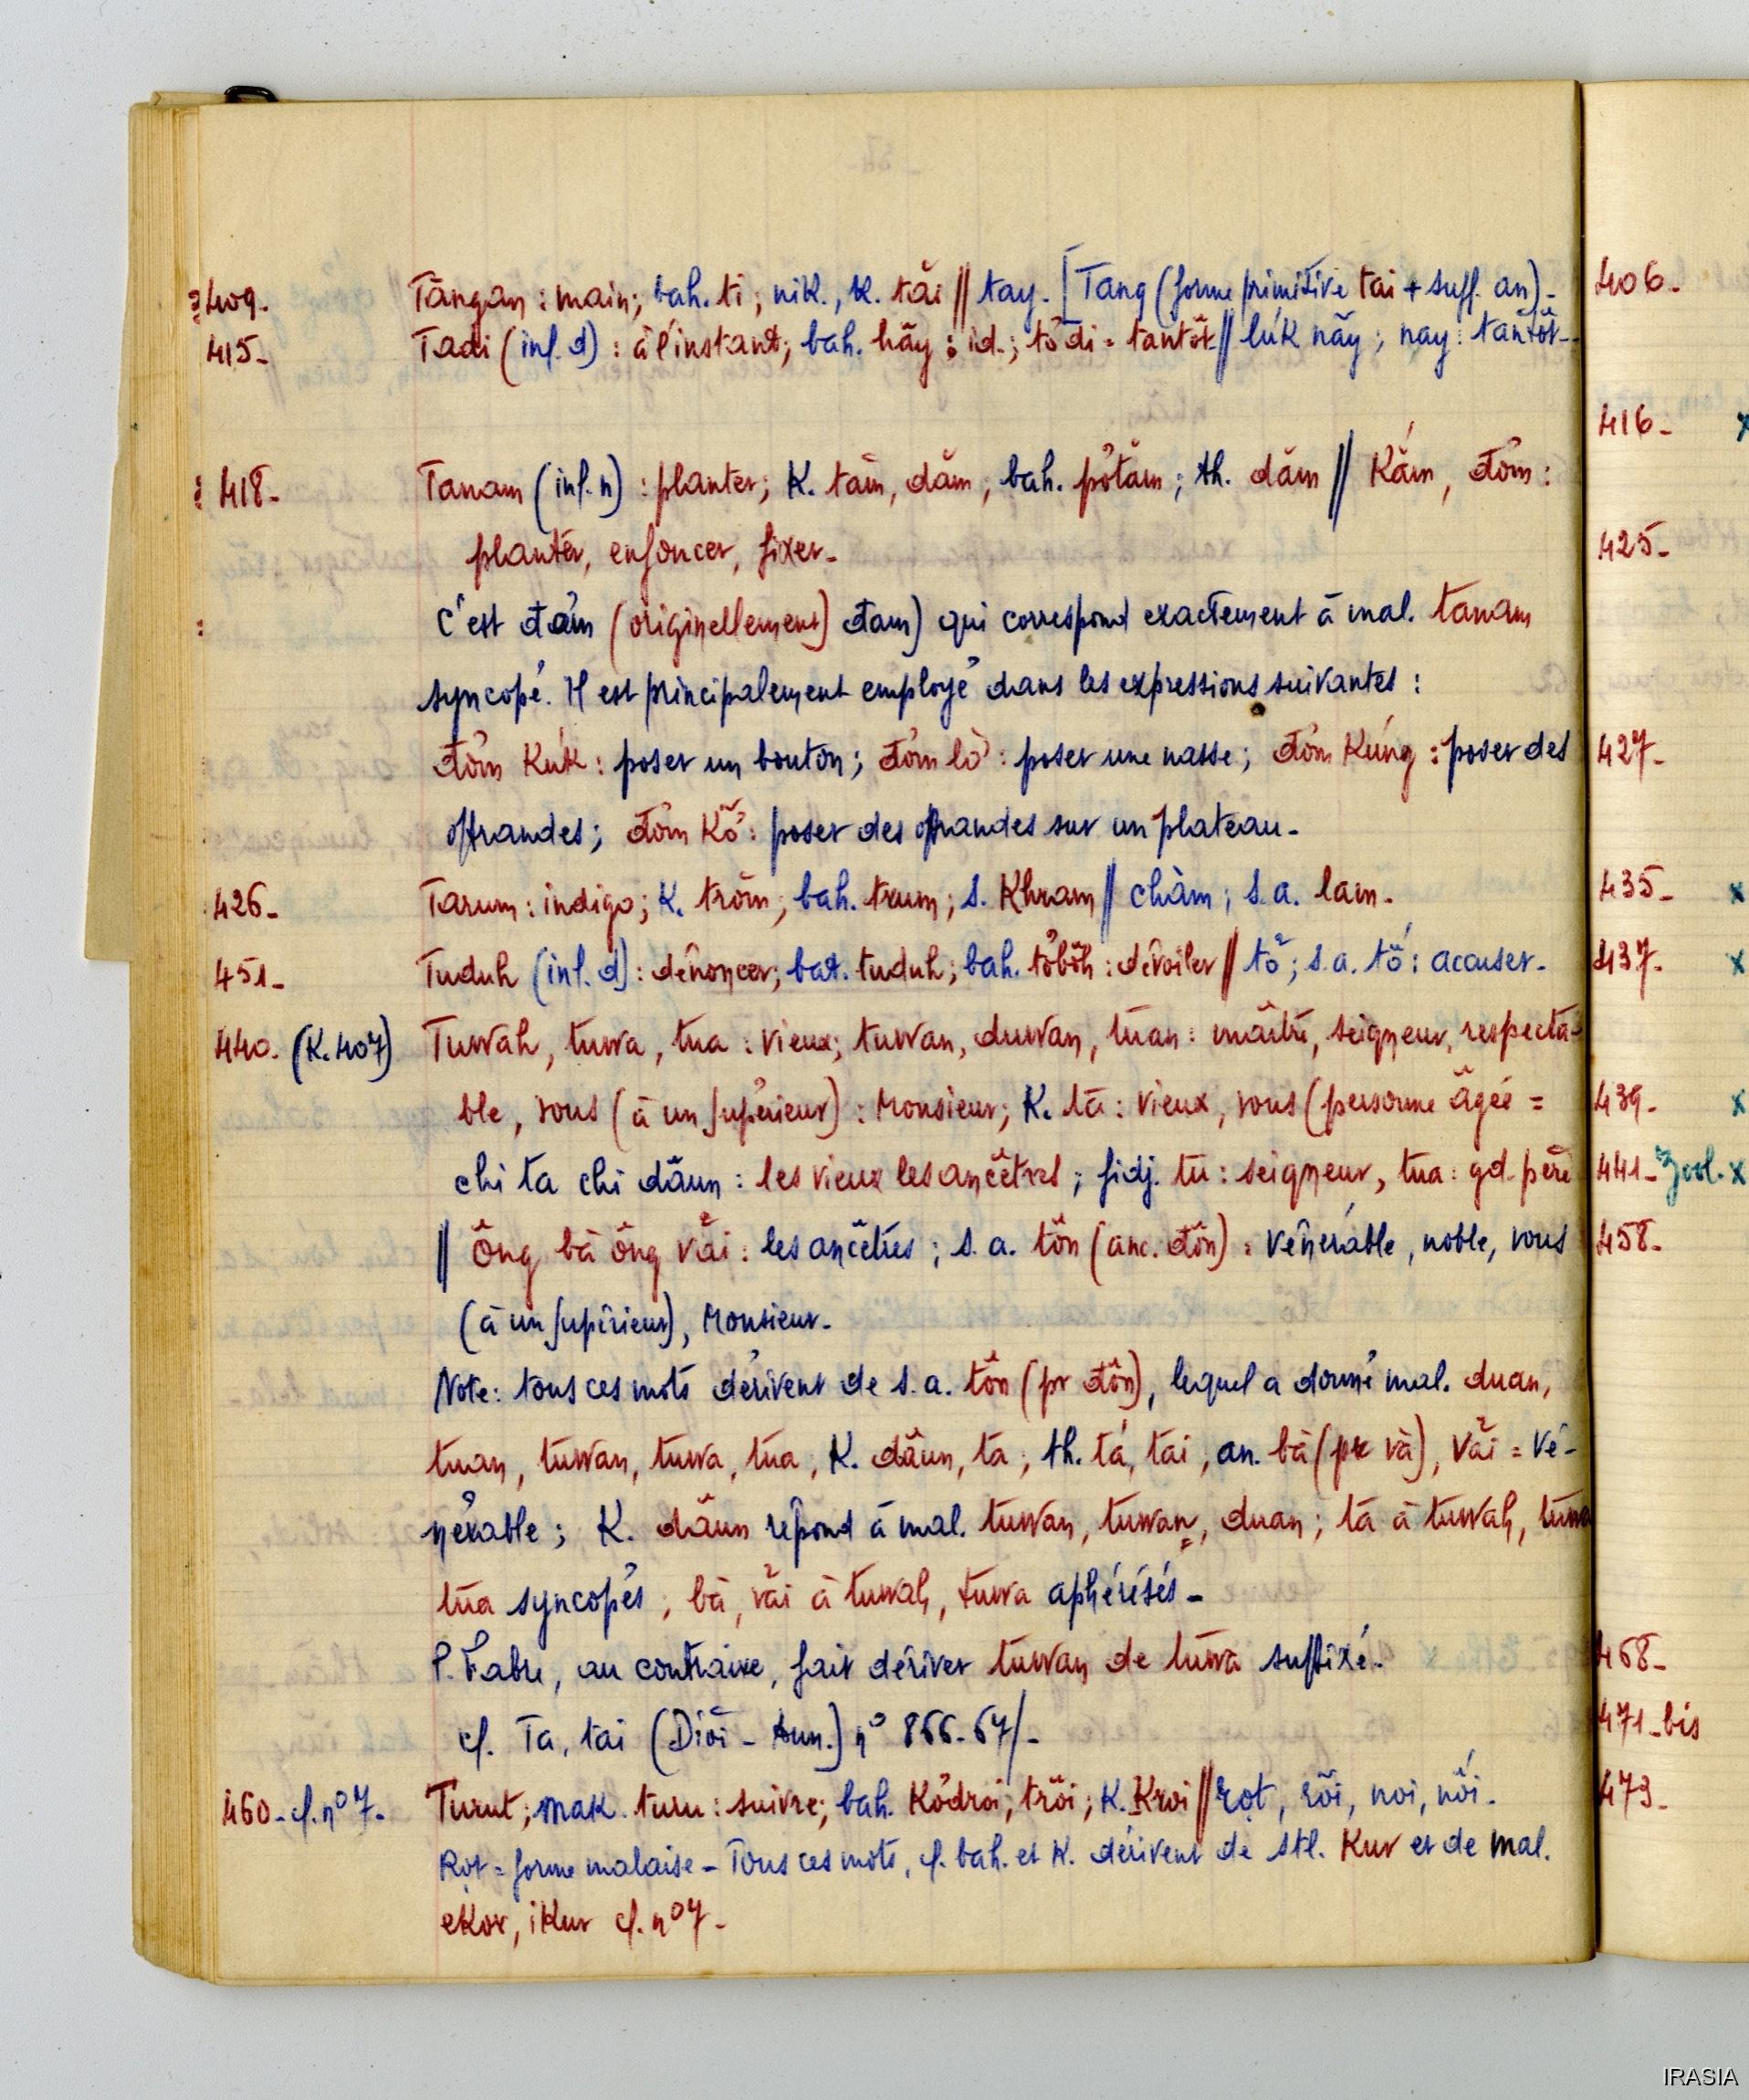 409. Tangan : main; bah. ti; nik., K. tăi // tay. [Tang (forme primitive tai + suff. an).
415. Tadi (inf. d) : à l'instant; bah. hăy : id.; tơ̆di = tantôt // lúk nãy; nay : tantôt.
418. Tanam (inf. n) : planter; K. tăm, dăm; bah. pơ̆tăm; th. dăm // Kăm, đơm :
planter, enfoncer, fixer.
C'est đơm (originellement) đam) qui correspond exactement à mal. tanam
syncopé. Il est principalement employé dans les expressions suivantes :
đơm Kúk : poser un bouton; đơm lờ : poser une nasse; đơm Kúng : poser des
offrandes; đơm Kỗ : poser des offrandes sur un plateau.
426. Tarum : indigo; K. trôm; bah. trum; s. Khram // chàm; s.a. lam.
451. Tuduh (inf. d) : dénoncer; bat. tuduh; bah. tơ̆bôh : dévoiler // tố; s.a. tố : accuser.
440. (K. 407) Tuwah, tuwa, tua : vieux; tuwan, duwan, tuan : maître, seigneur, respecta-
ble, vous (à un supérieur) : Monsieur; K. ta : vieux, vous (personne âgée =
chi ta chi dâun : les vieux les ancêtres; fidj. tu : seigneur, tua : gd. père
// Ông bà ông vải : les ancêtres; s.a. tôn (anc. đôn) : vénérable, noble, vous
(à un supérieur), Monsieur.
Note : tous ces mots dérivent de s.a. tôn (pr đôn), lequel a donné mal. duan,
tuan, tuwan, tuwa, tua, K. dâun, ta, th. tá, tai, an. bà (pr và), Vải = Vé-
nérable; K. dâun répond à mal. tuwan, tuwan, duan; ta à tuwah, tuwa
tua syncopés; bà, vải à tuwah, tuwa aphérésés.
P. Fabre, au contraire, fait dériver tuwan de tuwa suffixé.
cf. Ta, tai (Dioi - Ann.) n° 866-67/.
460. cf. n° 7. Turut; mak. turu : suivre; bah. Kơ̆droi; trŏi; K. Kroi // rọt, rồi, noi, nối.
Rọt = forme malaise - Tous ces mots, cf. bah. et K. dérivent de stl. Kur et de mal.
ekor, ikur cf. n° 7.
406.
416. x
425.
427.
435. x
437. x
439. x
441. Zool. x
458.
468.
471. bis
473.
IRASIA